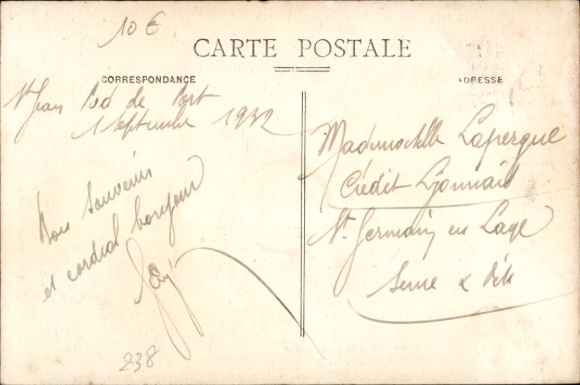 10 €
CARTE POSTALE
CORRESPONDANCE
ADRESSE
St Jean Pied de Port
1 Septembre 1932
Bons souvenirs
et cordial bonjour
238
Mademoiselle Lapergue
Crédit Lyonnais
St. Germain en Laye
Seine & Oise